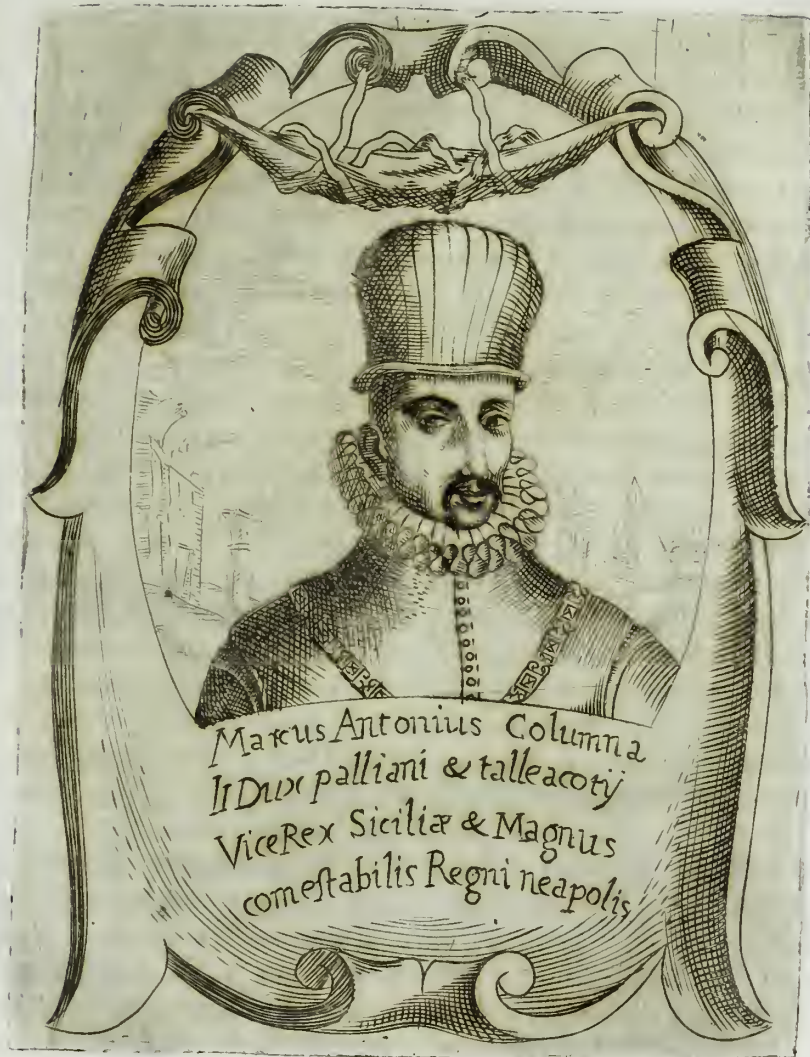 Marcus Antonius Columna
II Dux palliani & talleacotij
ViceRex Siciliæ & Magnus
comeſtabilis Regni neapolis